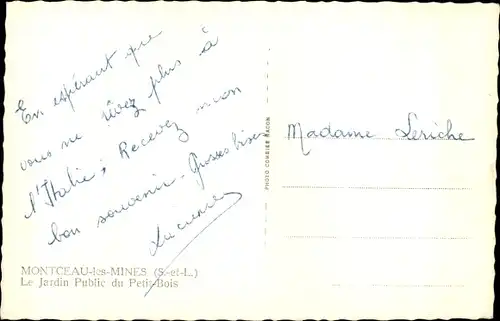 En espérant que
vous ne rêvez plus à
l'Italie; Recevez mon
bon souvenir - Grosses bises
Lucienne
MONTCEAU-les-MINES (S.-et-L.)
Le Jardin Public du Petit-Bois
PHOTO COMBIER MACON
Madame Leriche